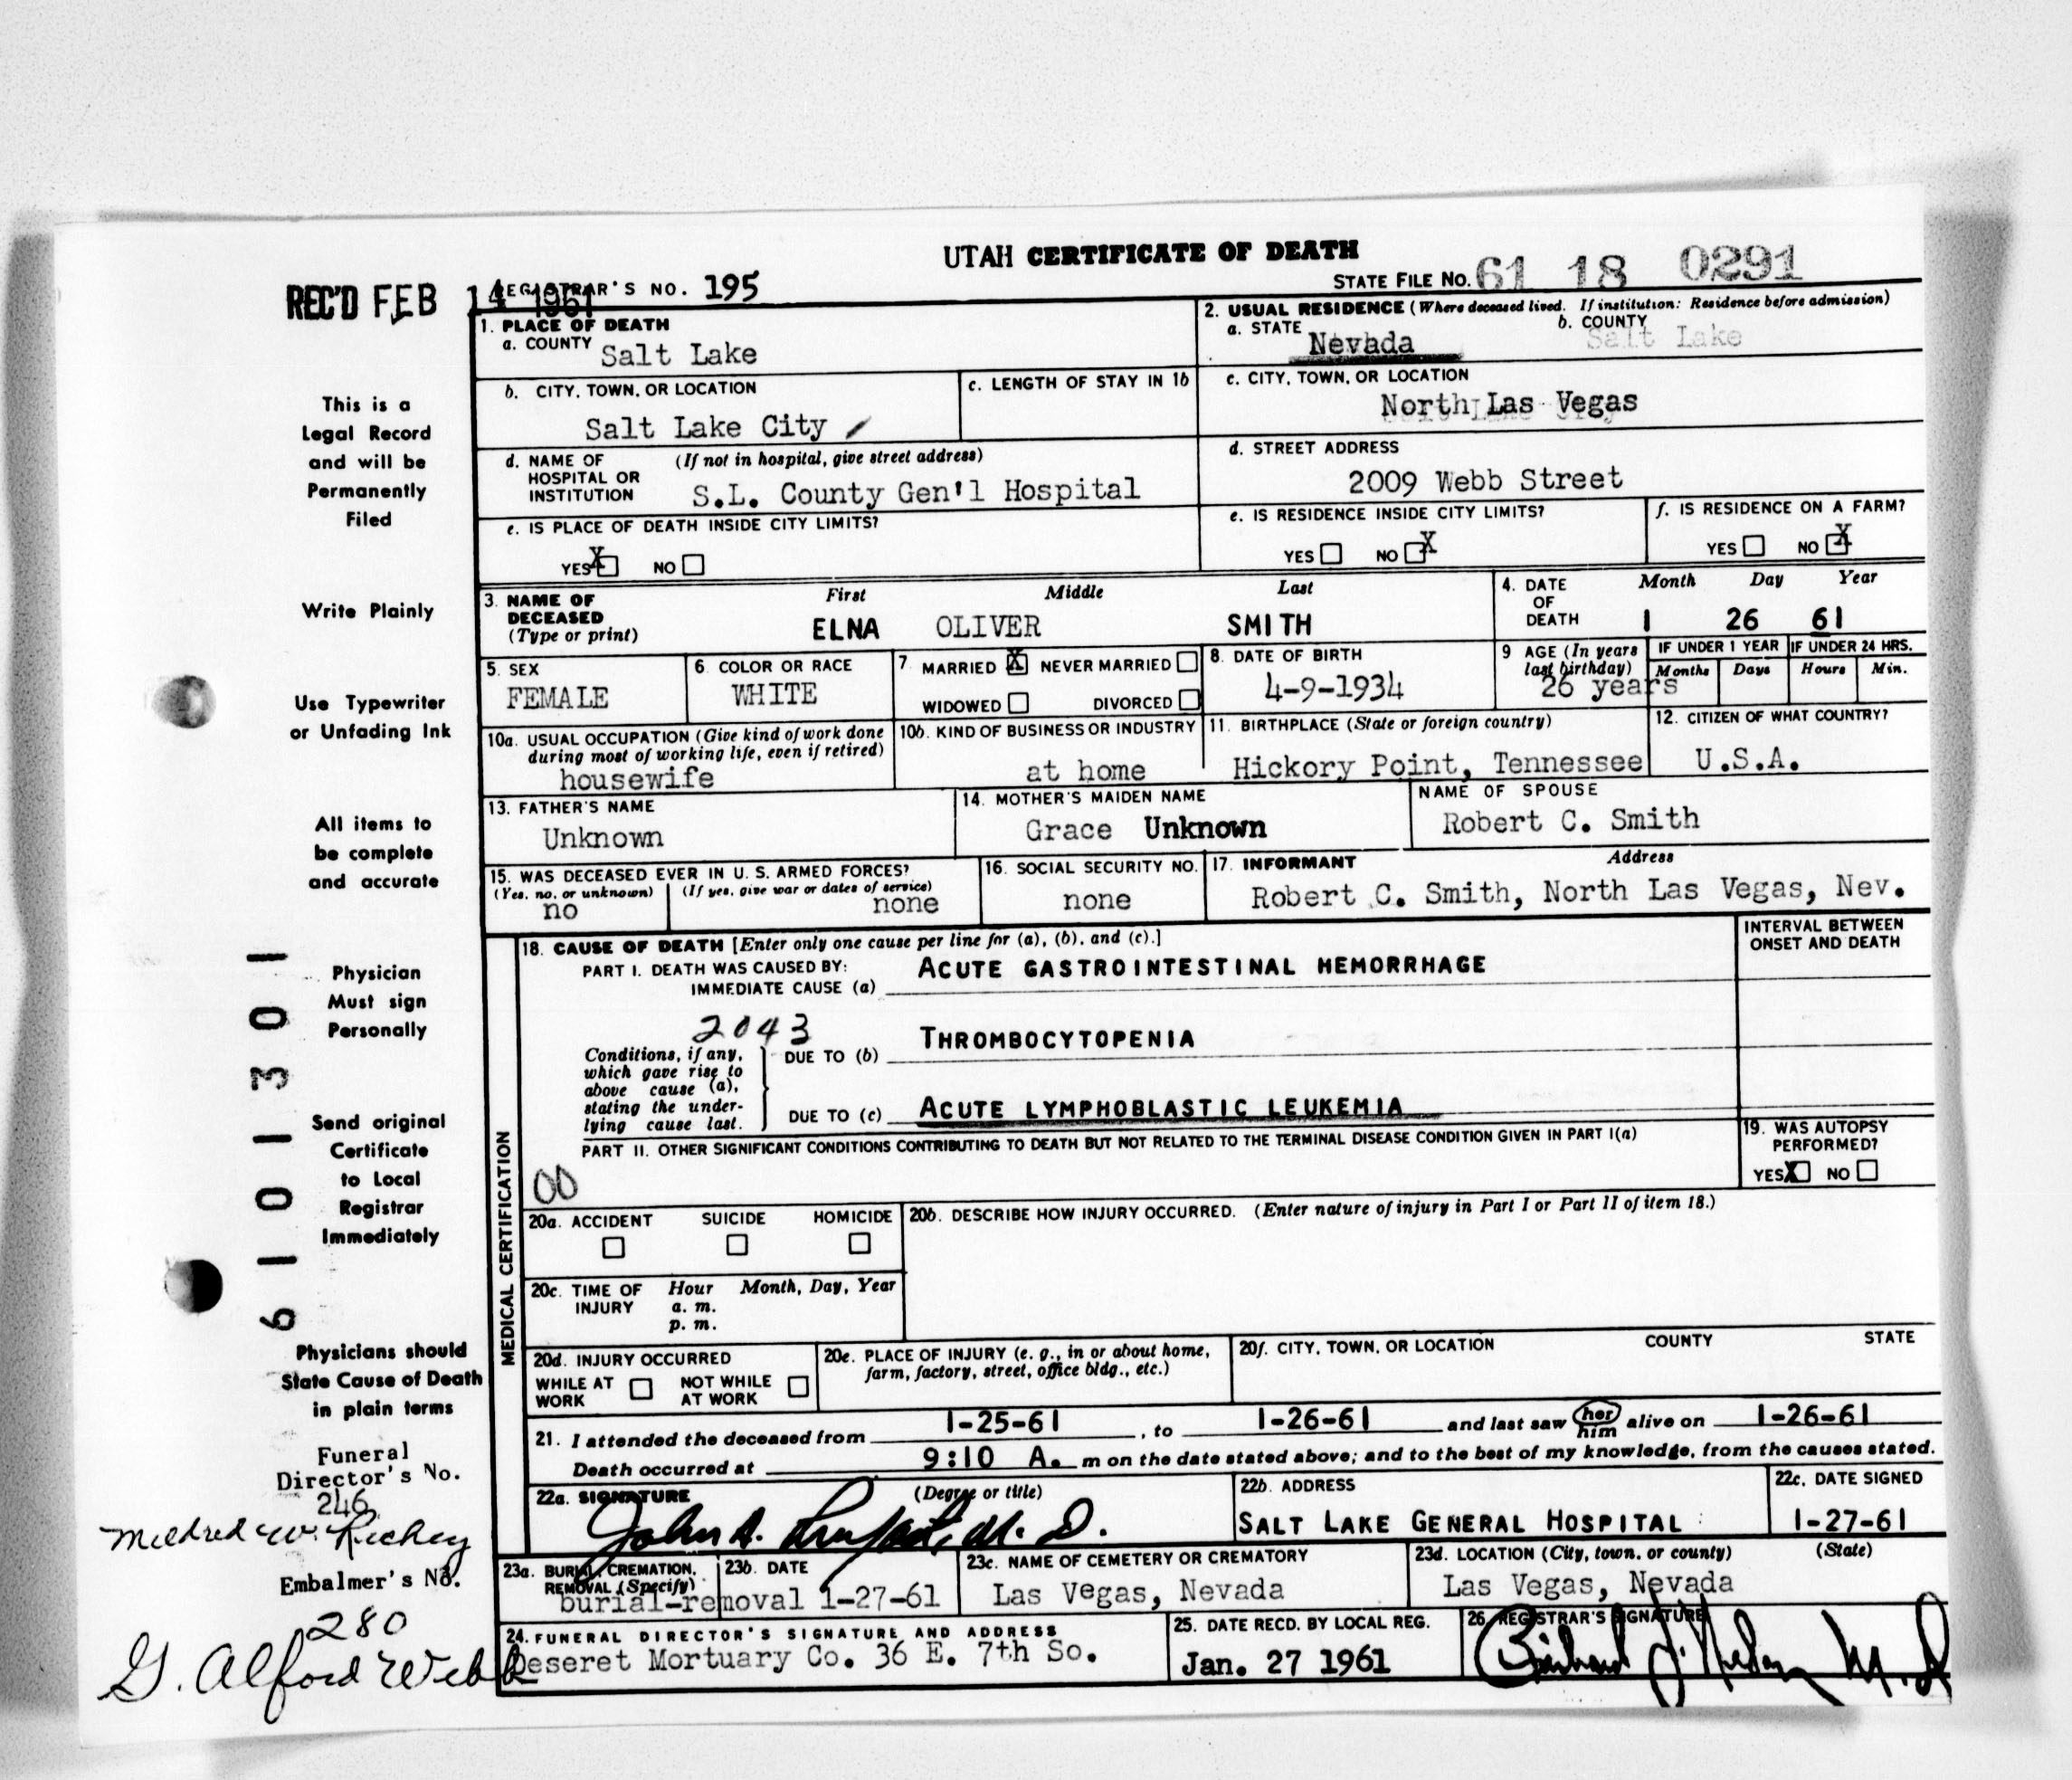 UTAH CERTIFICATE OF DEATH
REC'D FEB 14 1961
REGISTRAR'S NO. 195
STATE FILE NO. 61 18 0291
1. PLACE OF DEATH
a. COUNTY Salt Lake
2. USUAL RESIDENCE (Where deceased lived. If institution: Residence before admission)
a. STATE Nevada
b. COUNTY Salt Lake
b. CITY, TOWN, OR LOCATION
Salt Lake City
c. LENGTH OF STAY IN 1b
c. CITY, TOWN, OR LOCATION
North Las Vegas
d. NAME OF HOSPITAL OR INSTITUTION (If not in hospital, give street address)
S.L. County Gen'l Hospital
d. STREET ADDRESS
2009 Webb Street
e. IS PLACE OF DEATH INSIDE CITY LIMITS?
YES X NO
e. IS RESIDENCE INSIDE CITY LIMITS?
YES NO X
f. IS RESIDENCE ON A FARM?
YES NO X
3. NAME OF DECEASED (Type or print)
First Middle Last
ELNA OLIVER SMITH
4. DATE OF DEATH
Month Day Year
1 26 61
5. SEX
FEMALE
6. COLOR OR RACE
WHITE
7. MARRIED X NEVER MARRIED
WIDOWED DIVORCED
8. DATE OF BIRTH
4-9-1934
9 AGE (In years last birthday)
26 years
IF UNDER 1 YEAR
Months Days
IF UNDER 24 HRS.
Hours Min.
10a. USUAL OCCUPATION (Give kind of work done during most of working life, even if retired)
housewife
10b. KIND OF BUSINESS OR INDUSTRY
at home
11. BIRTHPLACE (State or foreign country)
Hickory Point, Tennessee
12. CITIZEN OF WHAT COUNTRY?
U.S.A.
13. FATHER'S NAME
Unknown
14. MOTHER'S MAIDEN NAME
Grace Unknown
NAME OF SPOUSE
Robert C. Smith
15. WAS DECEASED EVER IN U. S. ARMED FORCES?
(Yes, no, or unknown) (If yes, give war or dates of service)
no none
16. SOCIAL SECURITY NO.
none
17. INFORMANT Address
Robert C. Smith, North Las Vegas, Nev.
MEDICAL CERTIFICATION
18. CAUSE OF DEATH [Enter only one cause per line for (a), (b), and (c).]
INTERVAL BETWEEN ONSET AND DEATH
PART I. DEATH WAS CAUSED BY:
IMMEDIATE CAUSE (a) ACUTE GASTROINTESTINAL HEMORRHAGE
2043
Conditions, if any, which gave rise to above cause (a), stating the underlying cause last.
DUE TO (b) THROMBOCYTOPENIA
DUE TO (c) ACUTE LYMPHOBLASTIC LEUKEMIA
PART II. OTHER SIGNIFICANT CONDITIONS CONTRIBUTING TO DEATH BUT NOT RELATED TO THE TERMINAL DISEASE CONDITION GIVEN IN PART I(a)
00
19. WAS AUTOPSY PERFORMED?
YES X NO
20a. ACCIDENT SUICIDE HOMICIDE
20b. DESCRIBE HOW INJURY OCCURRED. (Enter nature of injury in Part I or Part II of item 18.)
20c. TIME OF INJURY
Hour Month, Day, Year
a. m.
p. m.
20d. INJURY OCCURRED
WHILE AT WORK NOT WHILE AT WORK
20e. PLACE OF INJURY (e. g., in or about home, farm, factory, street, office bldg., etc.)
20f. CITY, TOWN, OR LOCATION COUNTY STATE
21. I attended the deceased from 1-25-61, to 1-26-61 and last saw her him alive on 1-26-61
Death occurred at 9:10 A. m on the date stated above; and to the best of my knowledge, from the causes stated.
22a. SIGNATURE (Degree or title)
John A. M. D.
22b. ADDRESS
SALT LAKE GENERAL HOSPITAL
22c. DATE SIGNED
1-27-61
23a. BURIAL, CREMATION, REMOVAL (Specify)
burial-removal
23b. DATE
1-27-61
23c. NAME OF CEMETERY OR CREMATORY
Las Vegas, Nevada
23d. LOCATION (City, town, or county) (State)
Las Vegas, Nevada
24. FUNERAL DIRECTOR'S SIGNATURE AND ADDRESS
Deseret Mortuary Co. 36 E. 7th So.
25. DATE RECD. BY LOCAL REG.
Jan. 27 1961
26. REGISTRAR'S SIGNATURE
M.D
This is a
Legal Record
and will be
Permanently
Filed
Write Plainly
Use Typewriter
or Unfading Ink
All items to
be complete
and accurate
Physician
Must sign
Personally
Send original
Certificate
to Local
Registrar
Immediately
Physicians should
State Cause of Death
in plain terms
61 01 301
Funeral
Director's No.
246
Mildred W. Richey
Embalmer's No.
280
G. Alford Webb